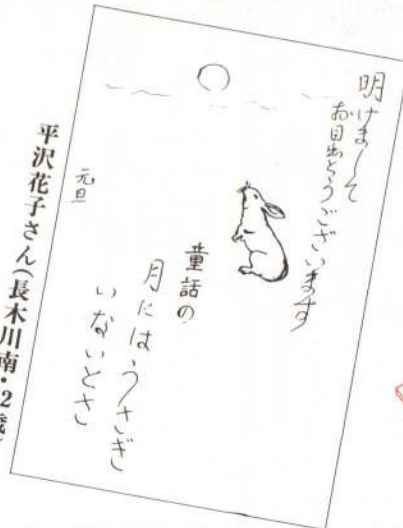 明けまして
お目出とうございます
童話の
月にはうさぎ
いないとさ
元旦
平沢花子さん(長木川南・2歳